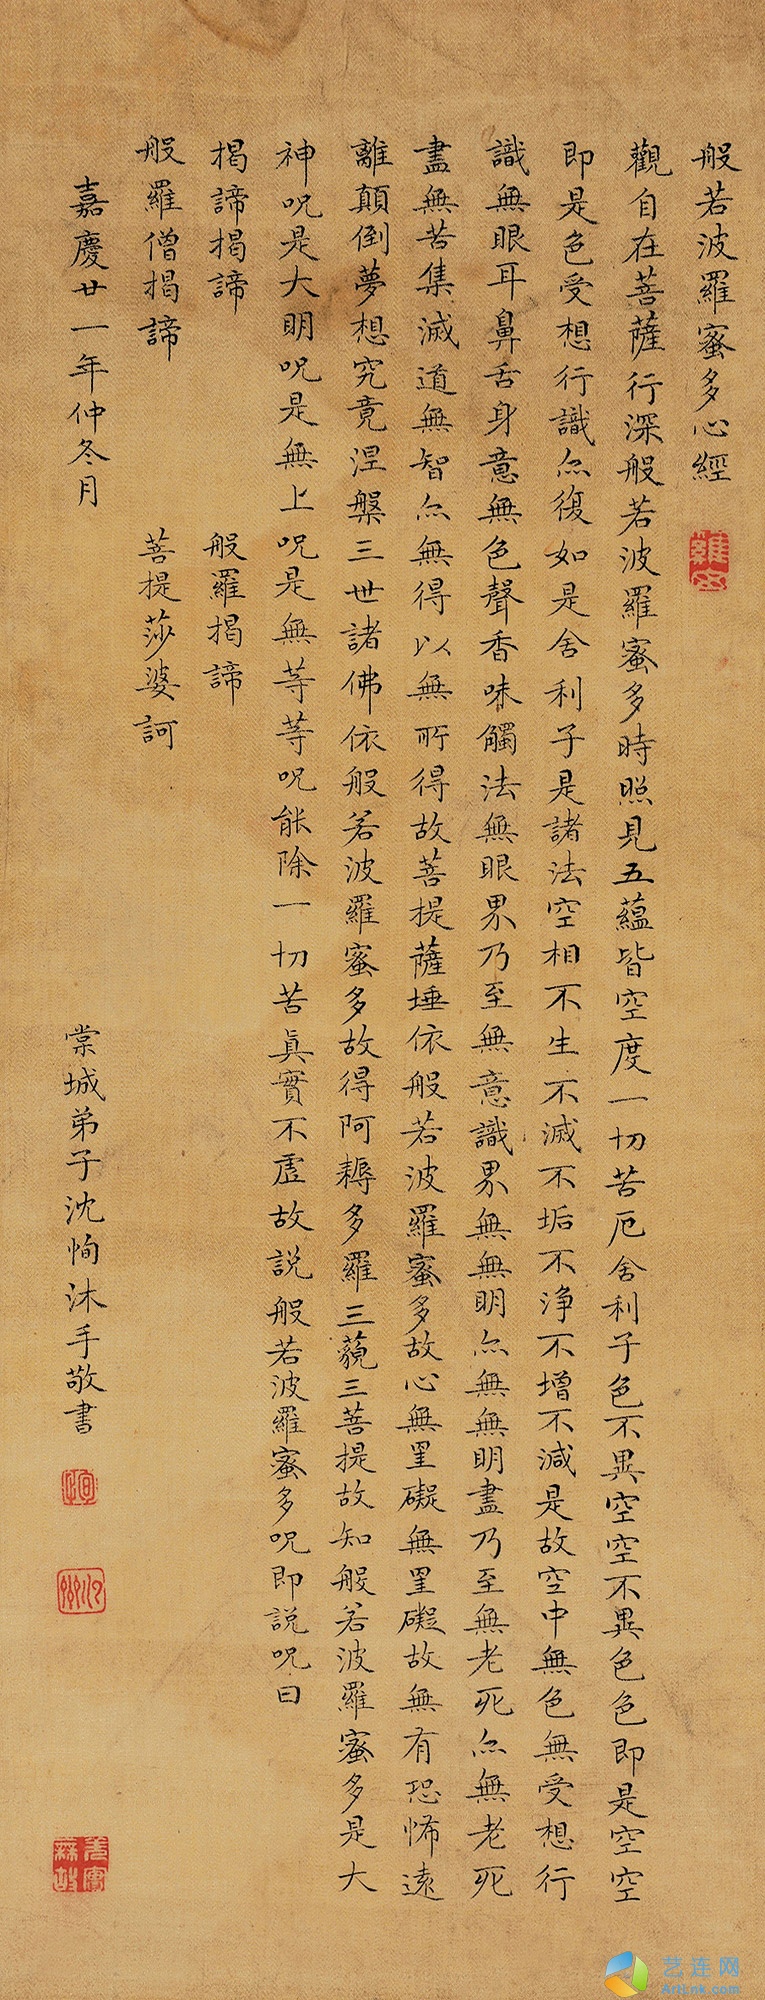 般若波羅蜜多心經
觀自在菩薩行深般若波羅蜜多時照見五蘊皆空度一切苦厄舍利子色不異空空不異色色即是空空
即是色受想行識亦復如是舍利子是諸法空相不生不滅不垢不淨不增不減是故空中無色無受想行
識無眼耳鼻舌身意無色聲香味觸法無眼界乃至無意識界無無明亦無無明盡乃至無老死亦無老死
盡無苦集滅道無智亦無得以無所得故菩提薩埵依般若波羅蜜多故心無罣礙無罣礙故無有恐怖遠
離顛倒夢想究竟涅槃三世諸佛依般若波羅蜜多故得阿耨多羅三藐三菩提故知般若波羅蜜多是大
神呪是大明呪是無上呪是無等等呪能除一切苦真實不虛故説般若波羅蜜多呪即説呪曰
揭諦揭諦 般羅揭諦
般羅僧揭諦 菩提莎婆訶
嘉慶廿一年仲冬月 棠城弟子沈恂沐手敬書
艺连网
ArtLnk.com